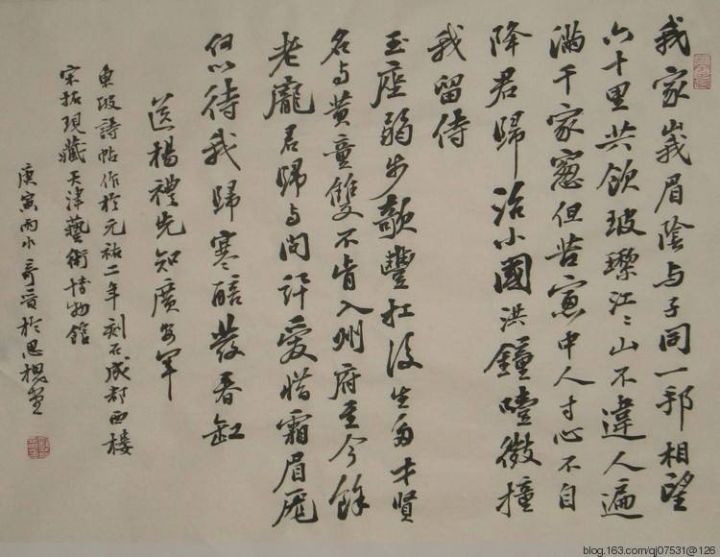 我家峩眉陰与子同一邦相望
六十里共飲玻瓈江〻山不違人遍
滿千家窻但苦窻中人寸心不自
降君歸治小國洪鐘噎微撞
我留侍
玉座弱步欹豐扛後生多才賢
名与黄童雙不肯入州府至今餘
老龐君歸与問訊愛惜霜眉厖
何以待我歸寒醅發春缸
送楊禮先知廣安軍
東坡詩帖作於元祐二年刻石成都西樓
宋拓現藏天津藝術博物館
庚寅雨水於思硯堂
blog.163.com/qj07531@126